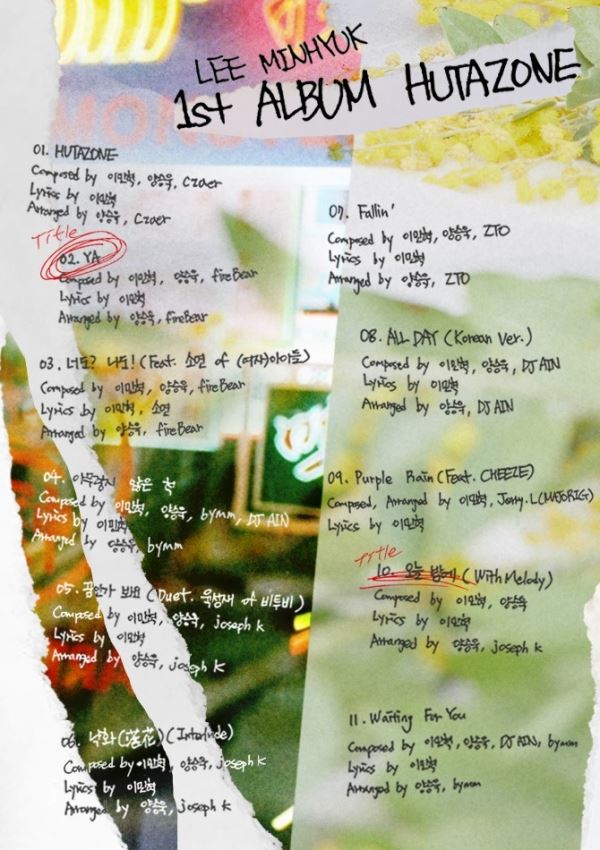 LEE MINHYUK
1st ALBUM HUTAZONE
01. HUTAZONE
Composed by 이민혁, 양승욱, Czaer
Lyrics by 이민혁
Arranged by 양승욱, Czaer
Title
02. YA
Composed by 이민혁, 양승욱, fireBear
Lyrics by 이민혁
Arranged by 양승욱, fireBear
03. 너도? 나도! (Feat. 소연 of (여자)아이들)
Composed by 이민혁, 양승욱, fireBear
Lyrics by 이민혁, 소연
Arranged by 양승욱, fireBear
04. 아무렇지 않은 척
Composed by 이민혁, 양승욱, bymm, DJ AIN
Lyrics by 이민혁
Arranged by 양승욱, bymm
05. 꿈인가 봐요 (Duet. 육성재 of 비투비)
Composed by 이민혁, 양승욱, joseph k
Lyrics by 이민혁
Arranged by 양승욱, joseph k
06. 낙화(落花)(Interlude)
Composed by 이민혁, 양승욱, joseph k
Lyrics by 이민혁
Arranged by 양승욱, joseph k
07. Fallin'
Composed by 이민혁, 양승욱, ZTO
Lyrics by 이민혁
Arranged by 양승욱, ZTO
08. ALL DAY (Korean Ver.)
Composed by 이민혁, 양승욱, DJ AIN
Lyrics by 이민혁
Arranged by 양승욱, DJ AIN
09. Purple Rain (Feat. CHEEZE)
Composed, Arranged by 이민혁, Jerry.L(MAJORIG)
Lyrics by 이민혁
Title
10. 오늘 밤에 (With Melody)
Composed by 이민혁, 양승욱
Lyrics by 이민혁
Arranged by 양승욱, joseph k
11. Waiting For You
Composed by 이민혁, 양승욱, DJ AIN, bymm
Lyrics by 이민혁
Arranged by 양승욱, bymm